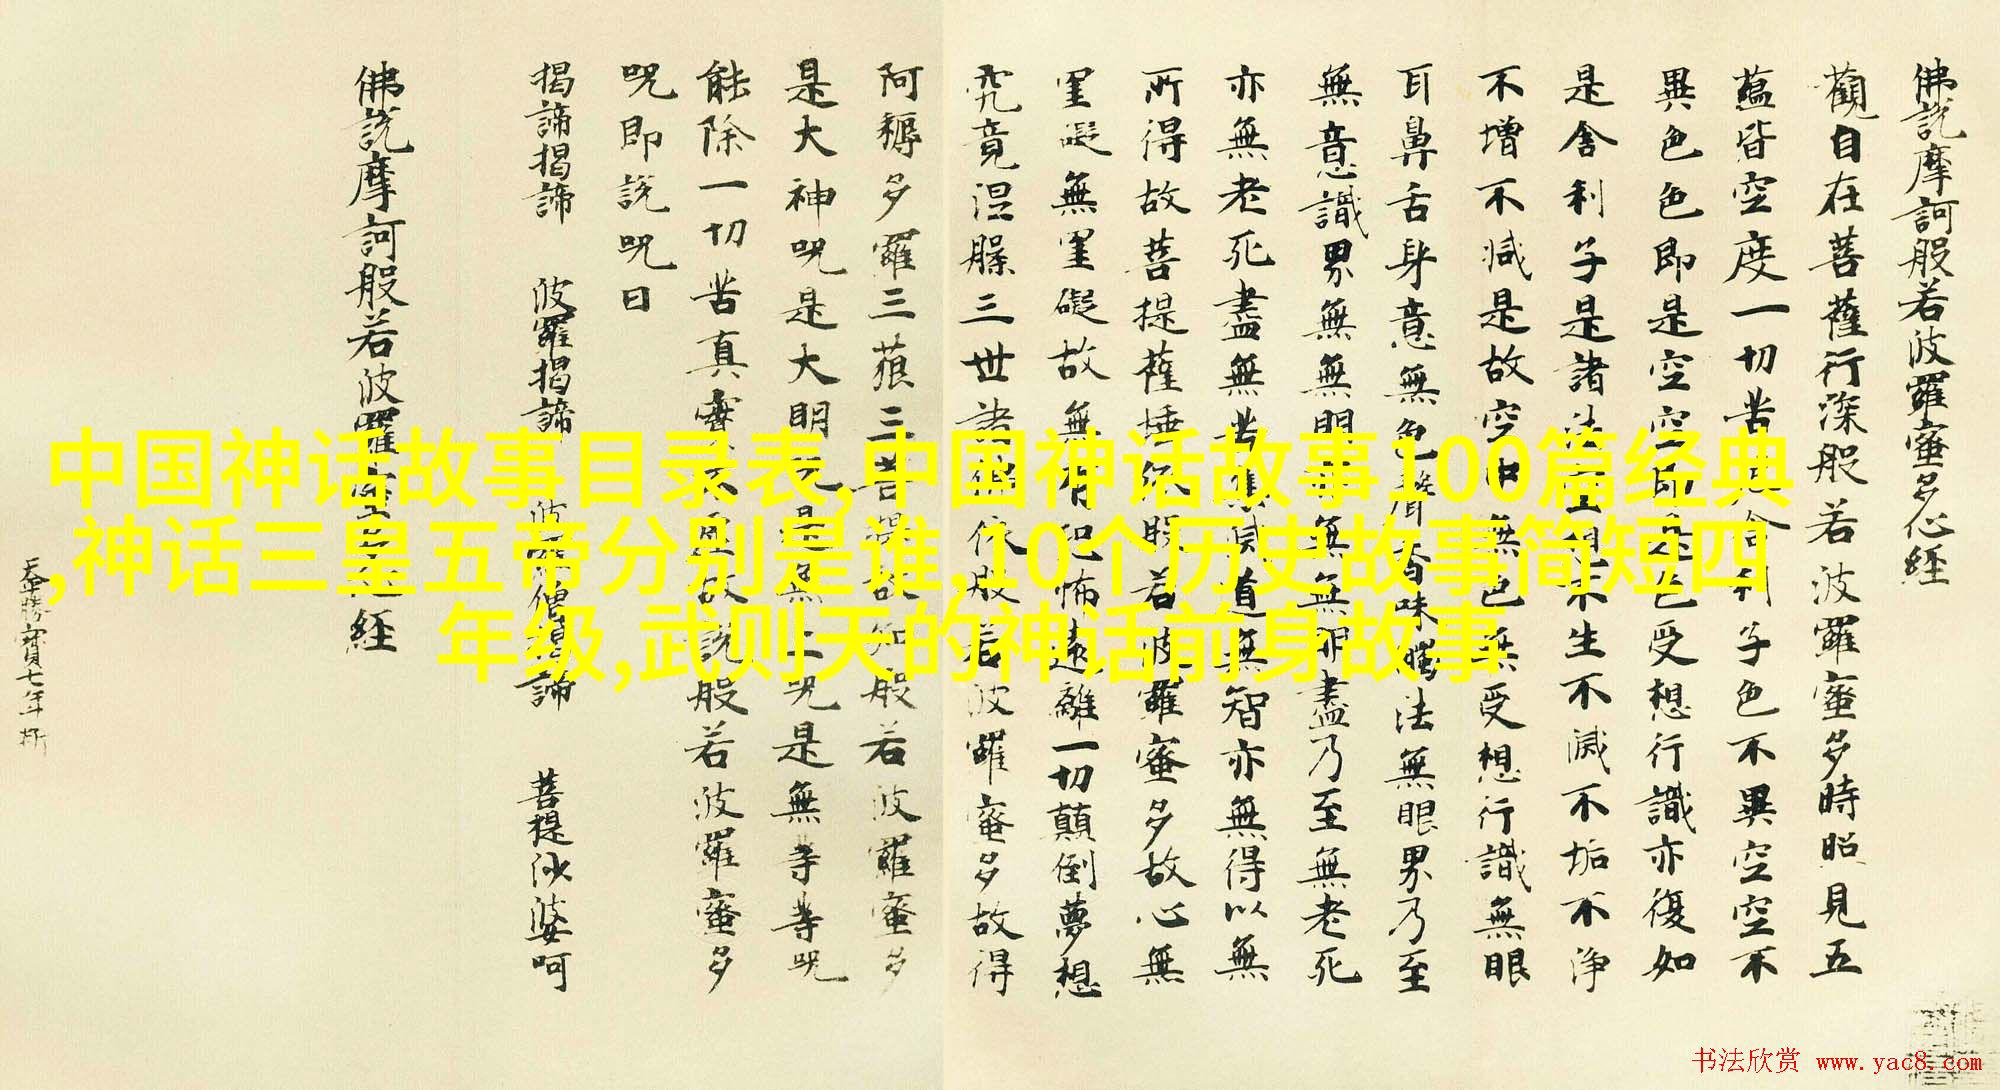 佛說摩訶般若波羅蜜多心經
觀自在菩薩行深般若波羅蜜多時照見五
蘊皆空度一切苦厄舍利子色不異空空不
異色色即是空空即是色受想行識亦復如
是舍利子是諸法空相不生不滅不垢不淨
不增不減是故空中無色無受想行識無眼
耳鼻舌身意無色聲香味觸法無眼界乃至
無意識界無無明亦無無明盡乃至無老死
亦無老死盡無苦集滅道無智亦無得以無
所得故菩提薩埵依般若波羅蜜多故心無
罣礙無罣礙故無有恐怖遠離一切顛倒夢想
究竟涅槃三世諸佛依般若波羅蜜多故得
阿耨多羅三藐三菩提故知般若波羅蜜多
是大神呪是大明呪是無上呪是無等等呪
能除一切苦真實不虛故說般若波羅蜜多
呪即說呪曰
揭諦揭諦 波羅揭諦 波羅僧揭諦 菩提沙婆呵
佛說摩訶般若波羅蜜多心經
天平勝寶七年
中国神话故事目录表,中国神话故事100篇经典
,神话三皇五帝分别是谁,10个历史故事简短四
年级,武则天的神话前身故事
书法欣赏 www.yac8.com